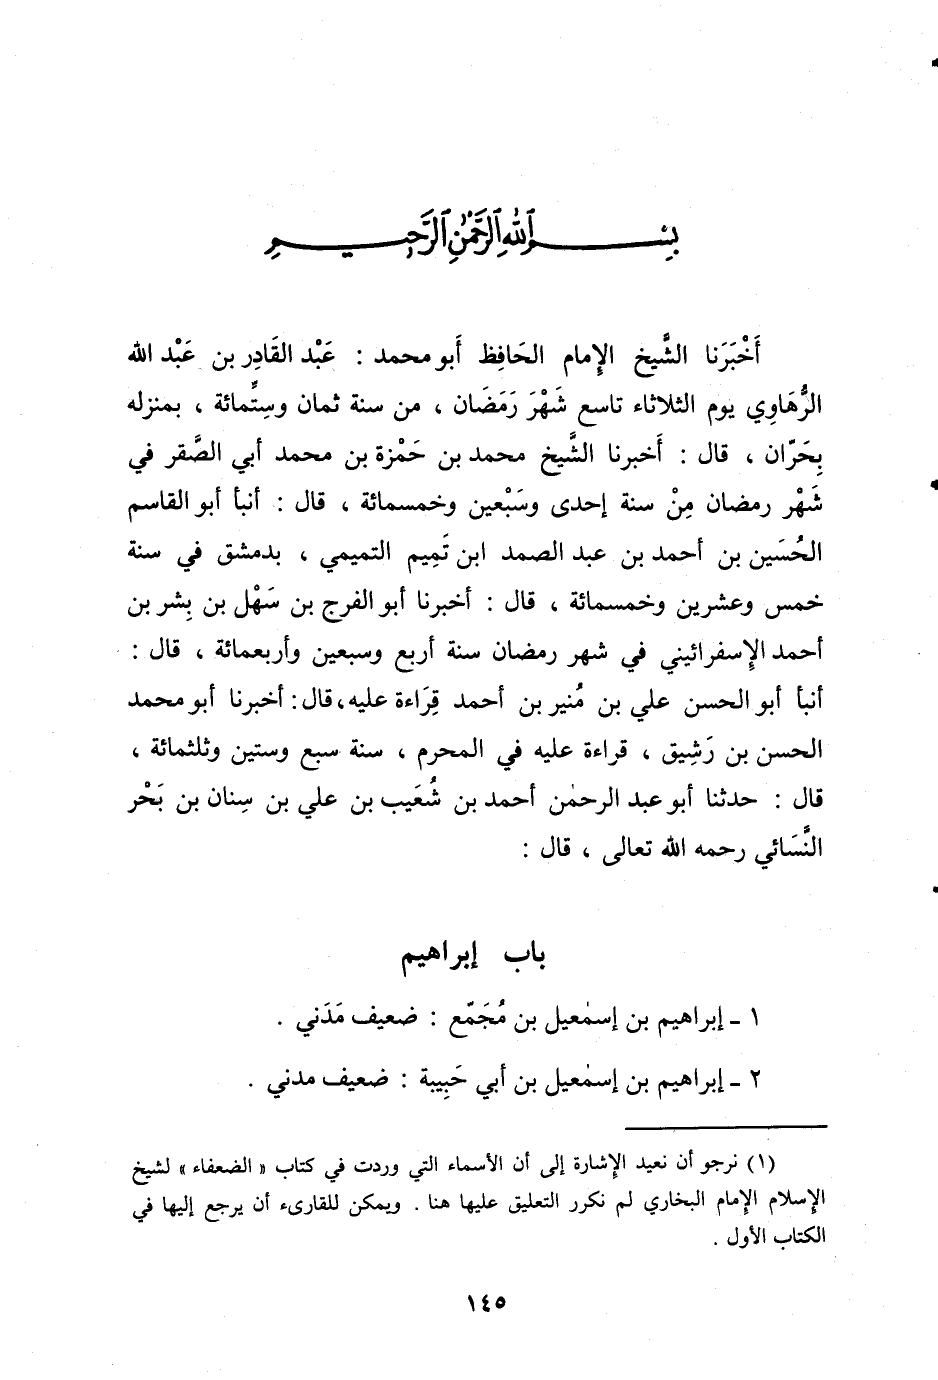 بسم الله الرحمن الرحيم
أَخْبَرَنا الشَّيخ الإمام الحَافِظ أَبو محمد : عَبْد القَادِر بن عَبْد الله
الرُّهَاوِي يوم الثلاثاء تاسع شَهْرَ رَمَضَان ، من سنة ثمان وسِتِّمائة ، بمنزله
بِحَرّان ، قال : أَخبرنا الشَّيخ محمد بن حَمْزة بن محمد أبي الصَّقر في
شَهْر رمضان مِنْ سنة إحدى وسَبْعين وخمسمائة ، قال : أنبأ أبو القاسم
الحُسَين بن أحمد بن عبد الصمد ابن تَمِيم التميمي ، بدمشق في سنة
خمس وعشرين وخمسمائة ، قال : أخبرنا أبو الفرج بن سَهْل بن بِشر بن
أحمد الإِسفرائيني في شهر رمضان سنة أربع وسبعين وأربعمائة ، قال :
أنبأ أبو الحسن علي بن مُنير بن أحمد قِرَاءة عليه، قال : أخبرنا أبو محمد
الحسن بن رَشِيق ، قراءة عليه في المحرم ، سنة سبع وستين وثلثمائة ،
قال : حدثنا أبو عبد الرحمٰن أحمد بن شُعَيب بن علي بن سِنان بن بَحْر
النَّسَائي رحمه الله تعالى ، قال :
باب إبراهيم
١ - إبراهيم بن إسمٰعيل بن مُجَمّع : ضعيف مَدَني .
٢ - إبراهيم بن إسمٰعيل بن أبي حَبِيبة : ضعيف مدني .
(١) نرجو أن نعيد الإشارة إلى أن الأسماء التي وردت في كتاب « الضعفاء » لشيخ
الإسلام الإمام البخاري لم نكرر التعليق عليها هنا . ويمكن للقارىء أن يرجع إليها في
الكتاب الأول .
١٤٥